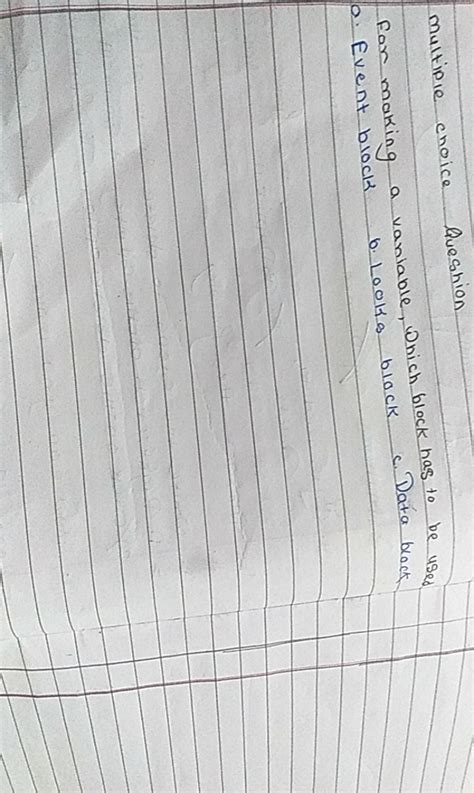 multiple choice Queshion
For making a variable, which block has to be used
a. Event block b. Looks block c. Data block